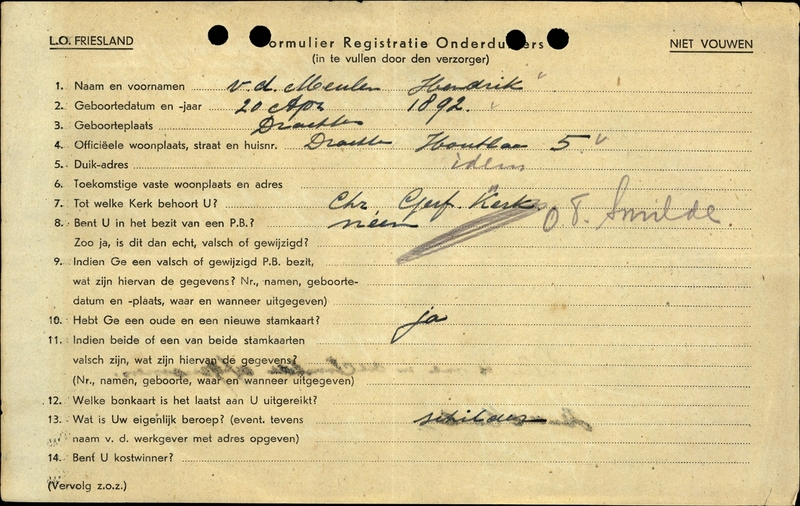 L.O. FRIESLAND
Formulier Registratie Onderduikers
NIET VOUWEN
(in te vullen door den verzorger)
1. Naam en voornamen v.d. Meulen Hendrik
2. Geboortedatum en -jaar 20 Apr 1892.
3. Geboorteplaats Drachten
4. Officiëele woonplaats, straat en huisnr. Drachten Houtlaan 5
5. Duik-adres idem
6. Toekomstige vaste woonplaats en adres
7. Tot welke Kerk behoort U? Chr. Geref. Kerk.
8. Bent U in het bezit van een P.B.? neen O.T. Smilde.
Zoo ja, is dit dan echt, valsch of gewijzigd?
9. Indien Ge een valsch of gewijzigd P.B. bezit,
wat zijn hiervan de gegevens? Nr., namen, geboorte-
datum en -plaats, waar en wanneer uitgegeven)
10. Hebt Ge een oude en een nieuwe stamkaart? ja
11. Indien beide of een van beide stamkaarten
valsch zijn, wat zijn hiervan de gegevens?
(Nr., namen, geboorte, waar en wanneer uitgegeven)
12. Welke bonkaart is het laatst aan U uitgereikt?
13. Wat is Uw eigenlijk beroep? (event. tevens schilder
naam v. d. werkgever met adres opgeven)
14. Bent U kostwinner?
(Vervolg z.o.z.)